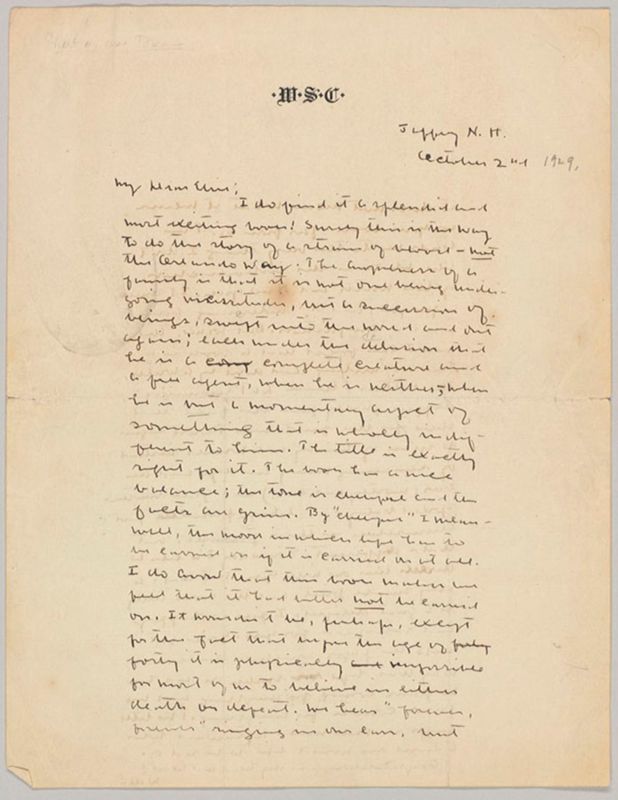 ·W·S·C·
Jaffrey N. H.
October 2nd 1929,
My Dear Elsie;
I do find it a splendid and
most exciting book! Surely this is the way
to do the story of a strain of blood - not
the Orlando way. The awfulness of a
family is that it is not one being under-
going vicissitudes, but a succession of
beings, swept into the world and out
again; each under the delusion that
he is a complete creature and
a free agent, when he is neither; when
he is but a momentary aspect of
something that is wholly indif-
ferent to him. The title is exactly
right for it. The book has a nice
balance; the tone is cheerful and the
facts are grim. By "cheerful" I mean -
well, the mood in which life has to
be carried on if it is carried on at all.
I do avow that this book makes me
feel that it had better not be carried
on. It wouldn't be, perhaps, except
for the fact that before the age of
forty it is physically impossible
for most of us to believe in either
death or defeat. We hear "forever,
forever" ringing in our ears, but